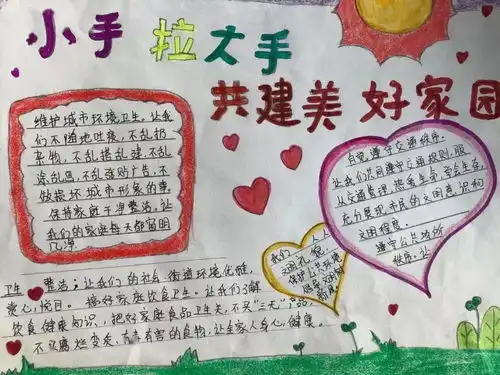 小手 拉大手
共建美好家园
维护城市环境卫生，让我
们不随地吐痰，不乱扔
杂物，不乱搭乱建，不乱
涂乱画，不乱张贴广告，不
做损坏城市形象的事。
保持家庭干净整洁，让
我们的家庭每天都窗明
几净
自觉遵守交通秩序。
让我们共同遵守交通规则，服
从交通管理，把爱生命，安全生存，
充分展现市民的文明意识和
文明程度。
遵守公共场所
秩序。让
我们人人
讲礼貌，
保护公共环境
卫生 整洁；让我们的社会、街道环境优雅，
赏心悦目。 搞好家庭饮食卫生。让我们了解
饮食健康知识，把好家庭食品卫生关，不买"三无"产品，
不买腐烂变质、有毒有害的食物，让全家人身心健康。